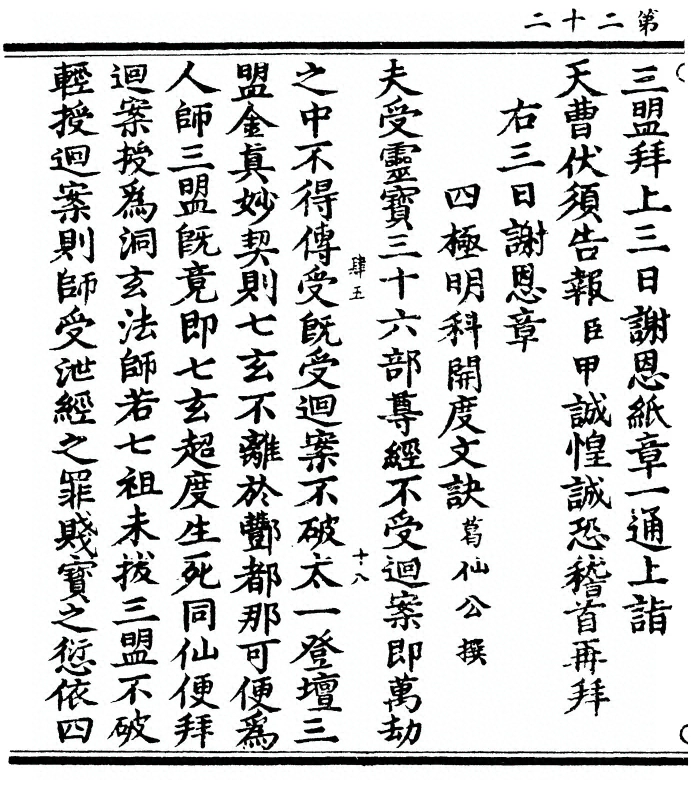 第二十二
三盟拜上三日謝恩紙章一通上詣
天曹伏須告報臣甲誠惶誠恐稽首再拜
右三日謝恩章
四極明科開度文訣葛仙公撰
夫受靈寶三十六部尊經不受迴案即萬劫
肆五 十八
之中不得傳受旣受迴案不破太一登壇三
盟金真妙契則七玄不離於酆都那可便爲
人師三盟旣竟即七玄超度生死同仙便拜
迴案授爲洞玄法師若七祖未拔三盟不破
輕授迴案則師受泄經之罪賤寶之愆依四